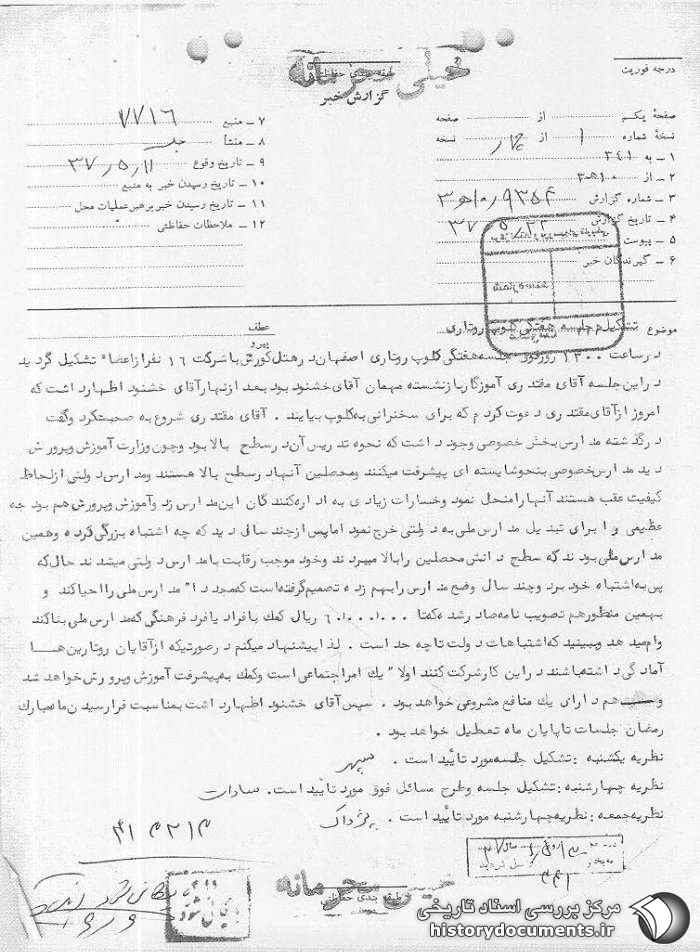 خیلی محرمانه
طبقه بندی حفاظتی
گزارش خبر
درجه فوریت
صفحهٔ یکم از صفحه
نسخهٔ شماره ۱ از چهار نسخه
۱ – به ۳۴۱
۲ – از ۱۰ ه‍ ۳
۳ – شماره گزارش ۳ ه‍ ۱۰٫۹۳۵۴
۴ – تاریخ گزارش
۵ – پیوست
۶ – گیرندگان خبر
۷ – منبع ۷۷۱۶
۸ – منشأ
۹ – تاریخ وقوع ۳۷٫۵٫۱۱
۱۰ – تاریخ رسیدن خبر به منبع
۱۱ – تاریخ رسیدن خبر برهبر عملیات محل
۱۲ – ملاحظات حفاظتی
موضوع تشکیل جلسه هفتگی کلوپ روتاری
عطف
پیرو
در ساعت ۱۳۰۰ روز فوق جلسه هفتگی کلوپ روتاری اصفهان در هتل کورش با شرکت ۱۶ نفر از اعضاء تشکیل گردید
در این جلسه آقای مقتدری آموزگار بازنشسته مهمان آقای خشنود بود بعد از نهار آقای خشنود اظهار داشت که
امروز از آقای مقتدری دعوت کردم که برای سخنرانی به کلوپ بیایند . آقای مقتدری شروع به صحبت کرد و گفت
در گذشته مدارس بخش خصوصی وجود داشت که نحوه تدریس آن در سطح بالا بود و چون وزارت آموزش و پرورش
دید مدارس خصوصی بنحو شایسته ای پیشرفت میکنند و محصلین آنها در سطح بالا هستند و مدارس دولتی از لحاظ
کیفیت عقب هستند آنها را منحل نمود و خسارات زیادی به اداره کنندگان این مدارس زد و آموزش و پرورش هم بودجه
عظیمی را برای تبدیل مدارس ملی به دولتی خرج نمود اما پس از چند سال دید که چه اشتباه بزرگی کرده و همین
مدارس ملی بودند که سطح دانش محصلین را بالا میبردند و خود موجب رقابت با مدارس دولتی میشدند حال که
پی به اشتباه خود برد و چند سال وضع مدارس را بهم زده تصمیم گرفته است که مجدداً مدارس ملی را احیا کند و
بهمین منظور هم تصویب نامه صادر شده که تا ۶۰۰۰۰۰۰ ریال کمک با فراد یا فرد فرهنگی که مدارس ملی بنا کند
وام میدهد و ببینید که اشتباهات دولت تا چه حد است . لذا پیشنهاد میکنم در صورتیکه از آقایان روتارین ها
آمادگی داشته باشند در این کار شرکت کنند اولاً یک امر اجتماعی است و کمک به پیشرفت آموزش و پرورش خواهد شد
و هم دارای یک منافع مشروعی خواهد بود . سپس آقای خشنود اظهار داشت بمناسبت فرا رسیدن ماه مبارک
رمضان جلسات تا پایان ماه تعطیل خواهد بود .
نظریه یکشنبه : تشکیل جلسه مورد تأیید است . سپهر
نظریه چهارشنبه : تشکیل جلسه و طرح مسائل فوق مورد تایید است . سادات
نظریه جمعه : نظریه چهارشنبه مورد تأیید است .
بایگانی شود
خیلی محرمانه
طبقه بندی حفاظتی
مرکز بررسی اسناد تاریخی
historydocuments.ir